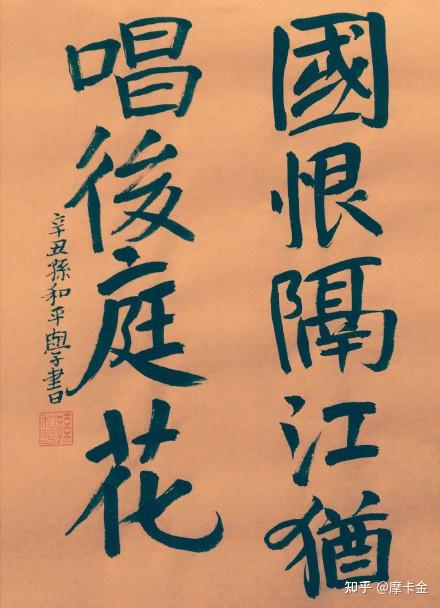 國恨隔江猶
唱後庭花
辛丑孫和平學書
知乎 @摩卡金